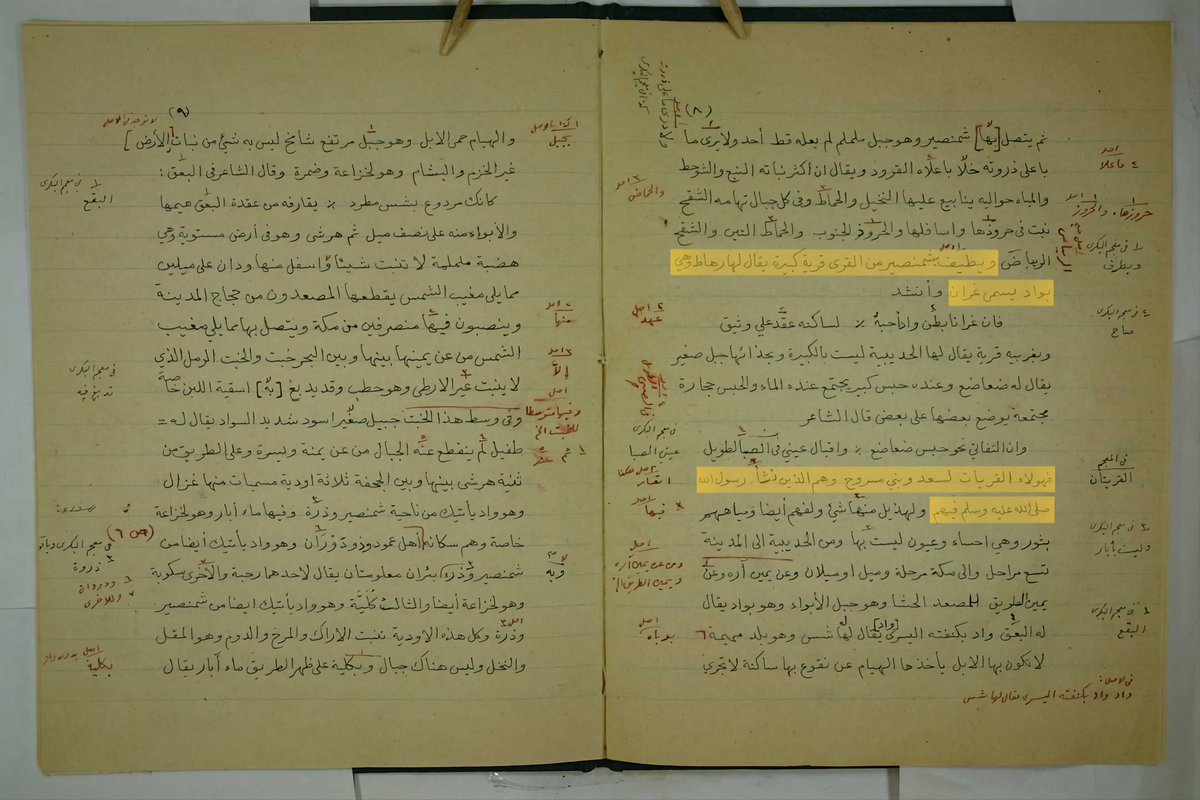 (٨)
ثم يتصل [بها] شمنصير وهو جبل ململم لم يعله قط أحد ولا يرى ما
با على ذروته خلا باعلاه القرود ويقال ان اكثر نباته النبع والشوحط
والمياه حواليه ينابيع عليها النخيل والحماط وفى كل جبال تهامه الشقح
نبت فى حروذها واسافلها والحروذ الجنوب والحماط التين والشقح
الرياض ويطيف بشمنصير من القرى قرية كبيرة يقال لها رهاط وهي
بواد يسمى غران وأنشد
فان غرانا بطن واد أحبه ٪ لساكنه عقد علي وثيق
وبغربيه قرية يقال لها الحديبية ليست بالكبيرة وبحذائها جبل صغير
يقال له ضعاضع وعنده حبس كبير يجتمع عنده الماء والحبس حجارة
مجتمعة يوضع بعضها على بعض قال الشاعر
وان التفاتي نحو حبس ضعاضع ٪ واقبال عيني فى الصبا الطويل
فهولاء القريات لسعد وبني مسروح وهم الذين نشأ رسول الله
صلى الله عليه وسلم فيهم ولهذيل منها شئ ولفهم أيضا ومياههم
بثور وهي احساء وعيون ليست بها ومن الحديبية الى المدينة
تسع مراحل والى مكة مرحلة وميل او ميلان وعن يمين آره وعن
يمين الطريق المصعد الحشا وهو جبل الأبواء وهو بواد يقال
له البعق واد بكنفته اليسرى [واد] يقال له شس وهو بلد مهيمة
لا تكون بها الابل يأخذها الهيام عن نقوع بها ساكنة لا تجري
فى الاصل:
واد واد بكنفته اليسرى يقال لها شس
فاعلا
فى معجم البكرى
ويطرف
فى المعجم
القريتان
فى معجم البكرى
وليست بآبار
فى معجم البكرى
البقع
(٩)
والهيام حمى الابل وهو جبل مرتفع شامخ ليس به شيئ من نبات [الأرض]
غير الخزم والبشام وهو لخزاعة وضمرة وقال الشاعر فى البعق:
كانك مردوع بشس مطرد ٪ يقارفه من عقدة البعق هيمها
والأبواء منه على نصف ميل ثم هرشى وهو فى أرض مستوية وهي
هضبة ململمة لا تنبت شيئا واسفل منها ودان على ميلين
مما يلى مغيب الشمس يقطعها المصعدون من حجاج المدينة
وينصبون فيها منصرفين من مكة ويتصل بها مما يلي مغيب
الشمس من عن يمينها بينها وبين البحر خبت والخبت الرمل الذي
لا ينبت غير الارطى وهو حطب وقد يدبغ [به] اسقية اللبن خاصة
وفى وسط هذا الخبت جبيل صغير اسود شديد السواد يقال له =
طفيل لم ينقطع عنه الجبال من عن يمنة ويسرة وعلى الطريق من
ثنية هرشى بينها وبين الجحفة ثلاثة اودية مسميات منها غزال
وهو واد يأتيك من ناحية شمنصير وذرة وفيها ماء آبار وهو لخزاعة
خاصة وهم سكانه أهل عمود وذو دوران وهو واد يأتيك أيضا من
شمنصير وذره بئران معلومتان يقال لاحدهما رحبة والأخرى سكوبة
وهو لخزاعة أيضا والثالث كلية وهو واد يأتيك ايضا من شمنصير
وذرة وكل هذه الاودية تنبت الاراك والمرخ والدوم وهو المقل
والنخل وليس هناك جبال وبكلية على ظهر الطريق ماء آبار يقال
بجبل
فى معجم البكرى
البقع
منها
إلا
فى معجم البكرى
(ص ٦)
بكلية